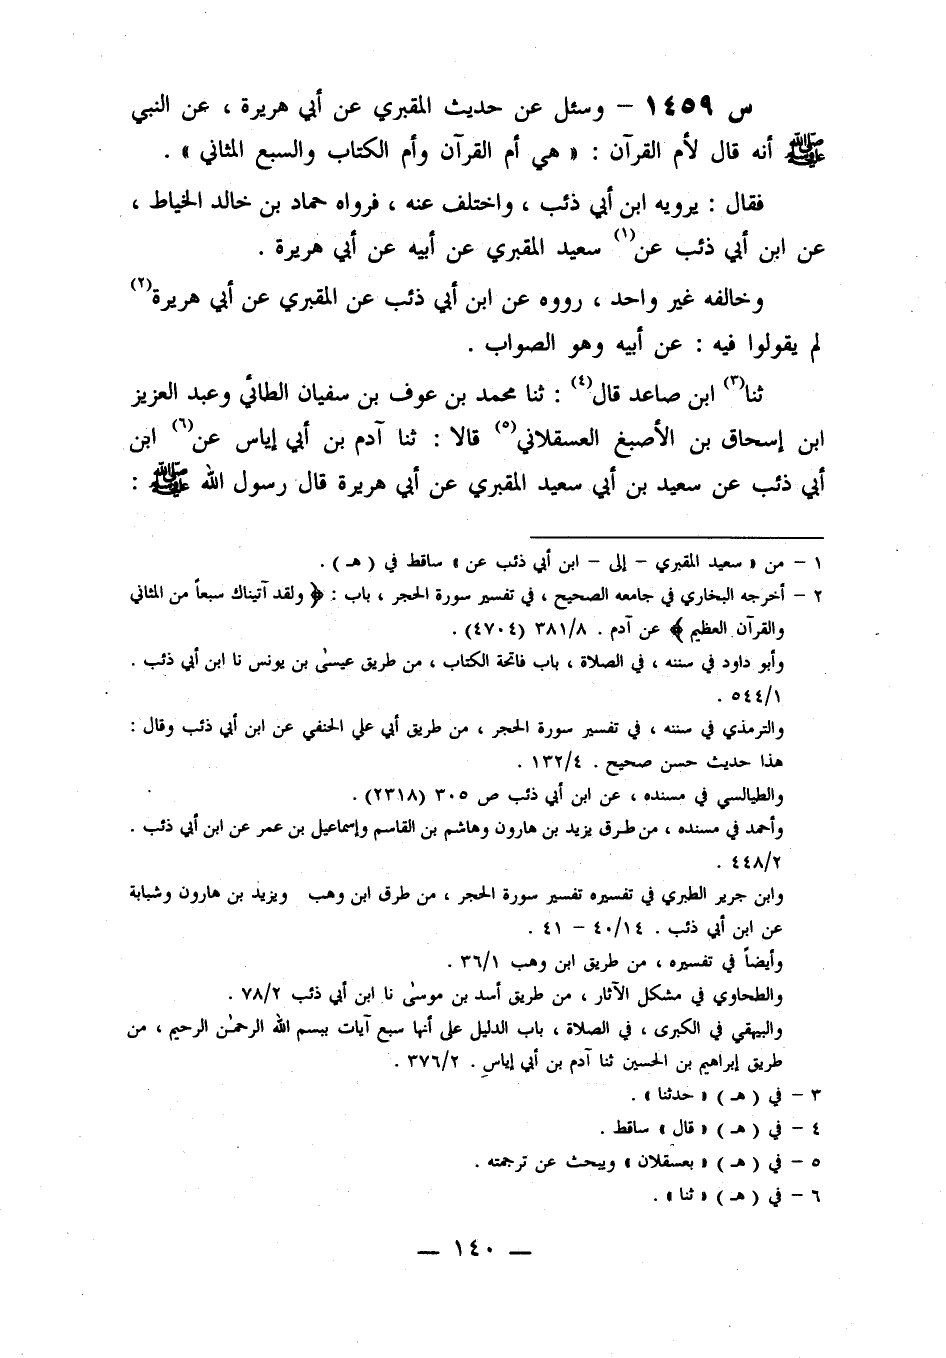 س ١٤٥٩ – وسئل عن حديث المقبري عن أبي هريرة ، عن النبي
ﷺ أنه قال لأم القرآن : « هي أم القرآن وأم الكتاب والسبع المثاني » .
فقال : يرويه ابن أبي ذئب ، واختلف عنه ، فرواه حماد بن خالد الخياط ،
عن ابن أبي ذئب عن(١) سعيد المقبري عن أبيه عن أبي هريرة .
وخالفه غير واحد ، رووه عن ابن أبي ذئب عن المقبري عن أبي هريرة(٢)
لم يقولوا فيه : عن أبيه وهو الصواب .
ثنا(٣) ابن صاعد قال(٤) : ثنا محمد بن عوف بن سفيان الطائي وعبد العزيز
ابن إسحاق بن الأصبغ العسقلاني(٥) قالا : ثنا آدم بن أبي إياس عن(٦) ابن
أبي ذئب عن سعيد بن أبي سعيد المقبري عن أبي هريرة قال رسول الله ﷺ :
١ – من « سعيد المقبري – إلى – ابن أبي ذئب عن » ساقط في ( هـ ) .
٢ – أخرجه البخاري في جامعه الصحيح ، في تفسير سورة الحجر ، باب : ﴿ ولقد آتيناك سبعاً من المثاني
والقرآن العظيم ﴾ عن آدم . ٣٨١/٨ (٤٧٠٤) .
وأبو داود في سننه ، في الصلاة ، باب فاتحة الكتاب ، من طريق عيسىٰ بن يونس نا ابن أبي ذئب .
٥٤٤/١ .
والترمذي في سننه ، في تفسير سورة الحجر ، من طريق أبي علي الحنفي عن ابن أبي ذئب وقال :
هذا حديث حسن صحيح . ١٣٢/٤ .
والطيالسي في مسنده ، عن ابن أبي ذئب ص ٣٠٥ (٢٣١٨) .
وأحمد في مسنده ، من طرق يزيد بن هارون وهاشم بن القاسم وإسماعيل بن عمر عن ابن أبي ذئب .
٤٤٨/٢ .
وابن جرير الطبري في تفسيره تفسير سورة الحجر ، من طرق ابن وهب ويزيد بن هارون وشبابة
عن ابن أبي ذئب . ٤٠/١٤ – ٤١ .
وأيضاً في تفسيره ، من طريق ابن وهب ٣٦/١ .
والطحاوي في مشكل الآثار ، من طريق أسد بن موسىٰ نا ابن أبي ذئب ٧٨/٢ .
والبيهقي في الكبرى ، في الصلاة ، باب الدليل على أنها سبع آيات ببسم الله الرحمٰن الرحيم ، من
طريق إبراهيم بن الحسين ثنا آدم بن أبي إياس . ٣٧٦/٢ .
٣ – في ( هـ ) « حدثنا » .
٤ – في ( هـ ) « قال » ساقط .
٥ – في ( هـ ) « بعسقلان » ويبحث عن ترجمته .
٦ – في ( هـ ) « ثنا » .
— ١٤٠ —